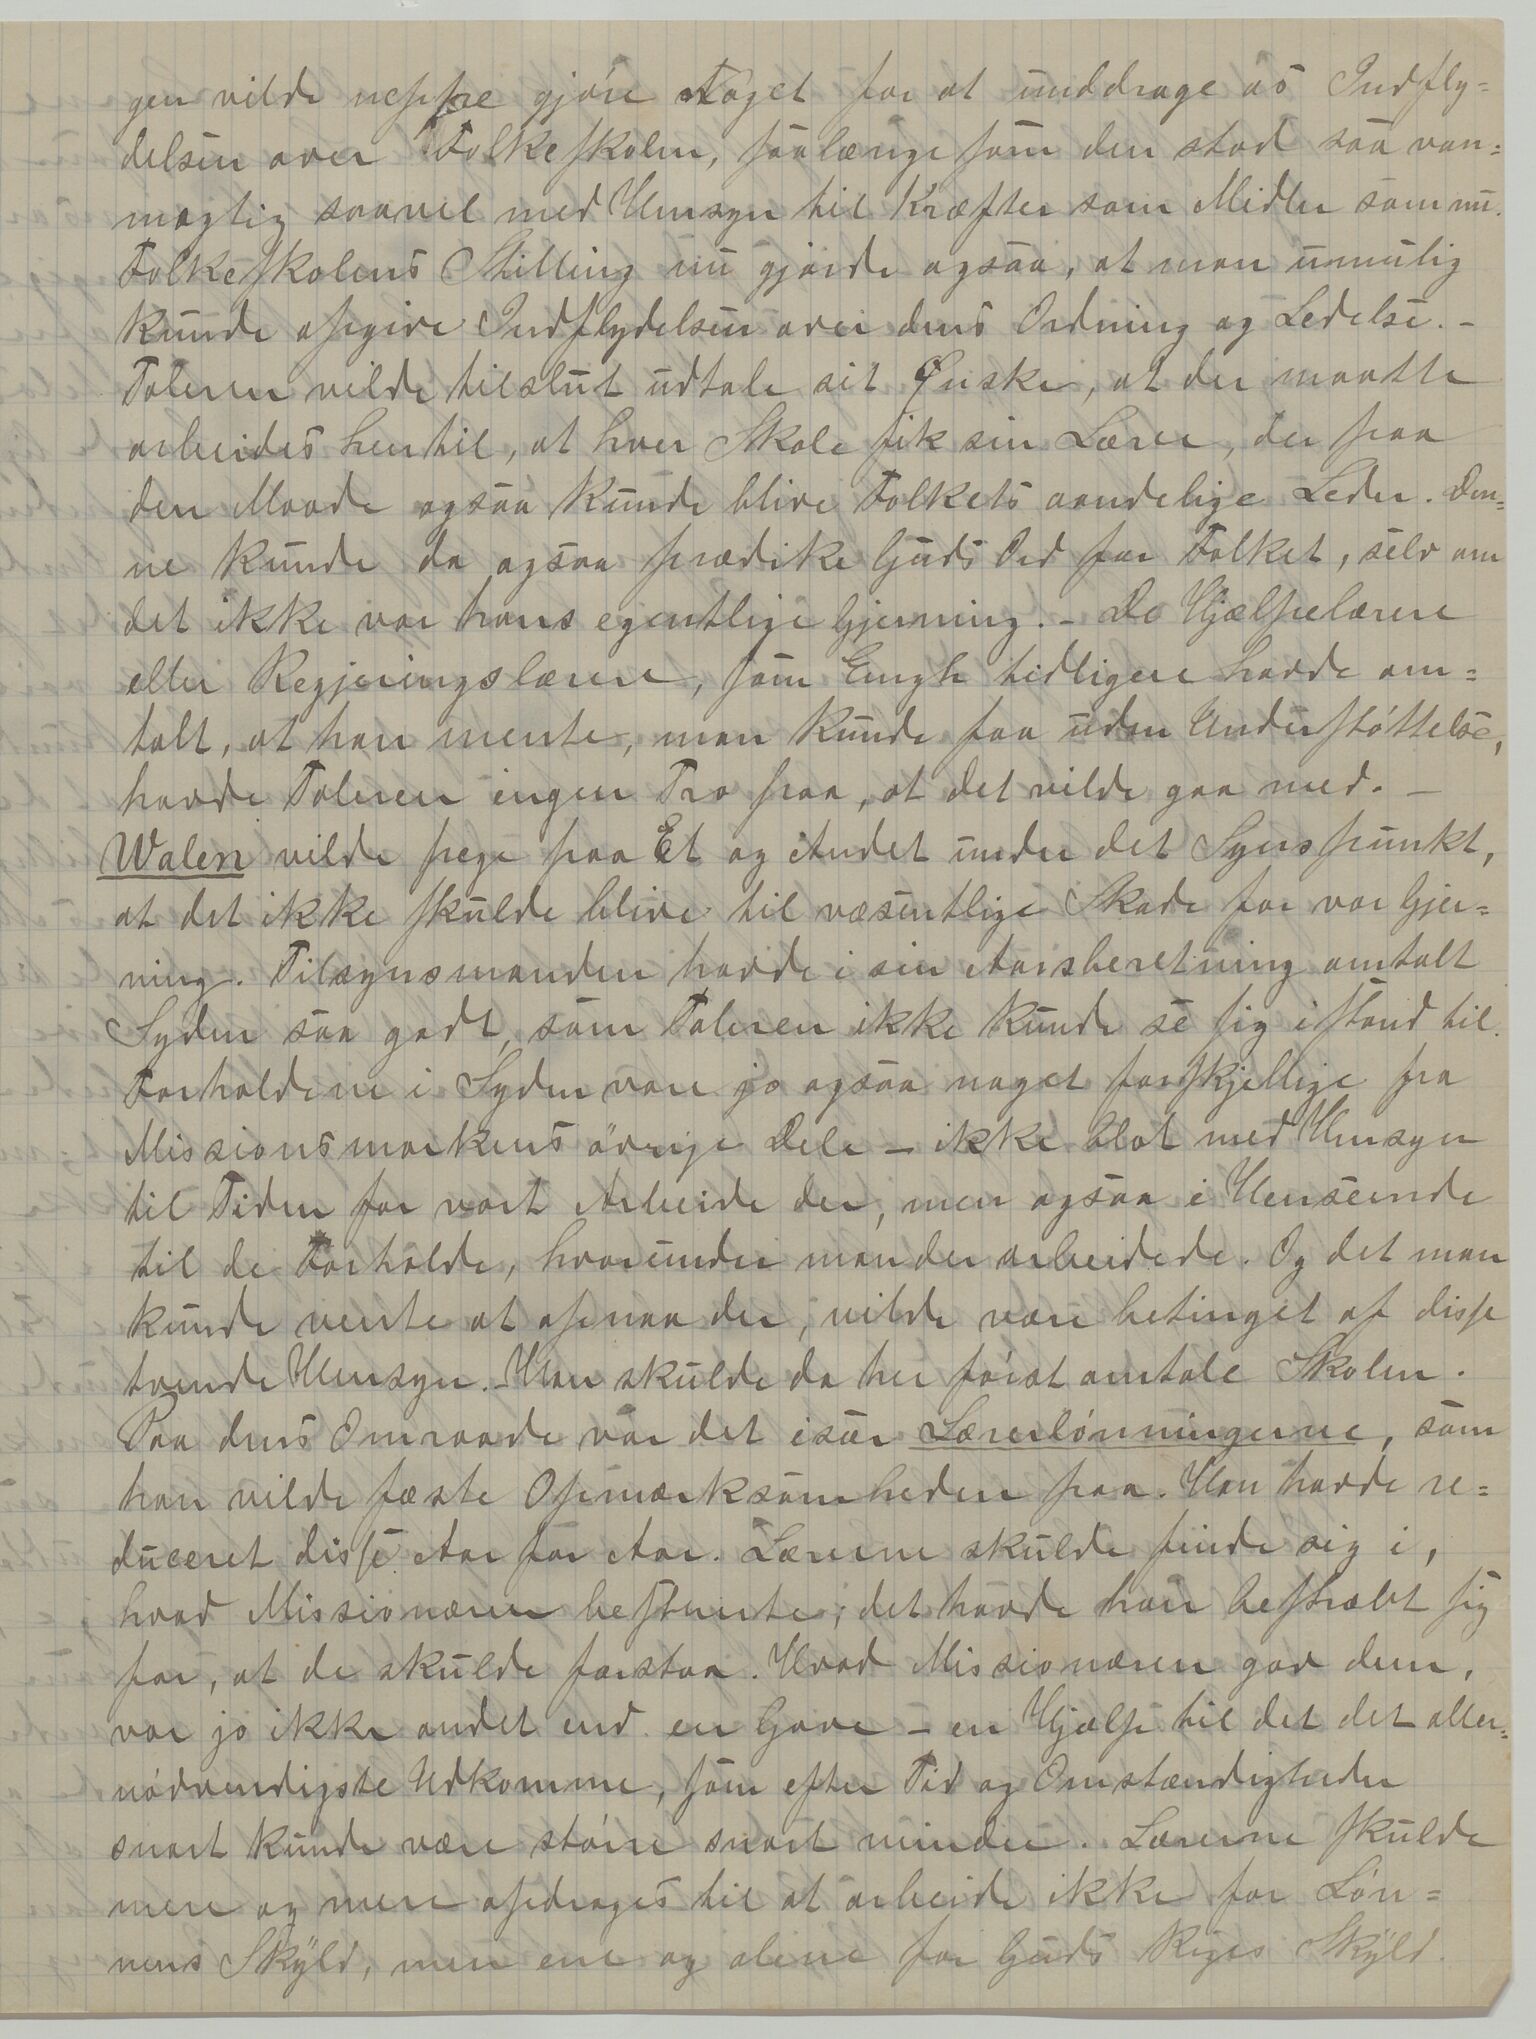 gen vilde neppe gjöre Noget for at unddrage os Indfly=
delsen over Folkeskolen, saalænge som den stod saa van=
mægtig saavel med Hensyn til Kræfter som Midler som nu.
Folkeskolens Stilling nu gjorde ogsaa, at man umulig
kunde opgive Indflydelsen over dens Ordning og Ledelse. –
Taleren vilde tilslut udtale sit Ønske, at der maatte
arbeides hen til, at hver Skole fik sin Lærer, der paa
den Maade ogsaa kunde blive Folkets aandelige Leder. Den=
ne kunde da ogsaa prædike Guds Ord for Folket, selv om
det ikke var hans egentlige Gjerning. – De Hjælpelærere
eller Regjeringslærere, som Engh tidligere havde om=
talt, at han mente, man kunde faa uden Understöttelse,
havde Taleren ingen Tro paa, at det vilde gaa med. –
Walen vilde pege paa Et og Andet under det Synspunkt,
at det ikke skulde blive til væsentlige Skade for vor Gjer=
ning. Tilsynsmanden havde i sin Aarsberetning omtalt
Syden saa godt, som Taleren ikke kunde se sig istand til.
Forholdene i Syden vare jo ogsaa noget forskjellige fra
Missionsmarkens övrige Dele – ikke blot med Hensyn
til Tiden for vort Arbeide der, men ogsaa i Henseende
til de Forholde, hvorunder man der arbeidede. Og det man
kunde vente at opnaa der, vilde være betinget af disse
tvende Hensyn. – Han skulde da her först omtale Skolen.
Paa dens Omraade var det især Lærerlönningerne, som
han vilde fæste Opmærksomheden paa. Han havde re=
duceret disse Aar for Aar. Lærerne skulde finde sig i,
hvad Missionæren bestemte; det havde han bestræbt sig
for, at de skulde forstaa. Hvad Missionæren gav dem,
var jo ikke andet end en Gave – en Hjælp til det det aller=
nödvendigste Udkomme, som efter Tid og Omstændigheder
snart kunde være större snart mindre. Lærerne skulde
mere og mere opdrages til at arbeide ikke for Lön=
nens Skÿld, men ene og alene for Guds Riges Skÿld.